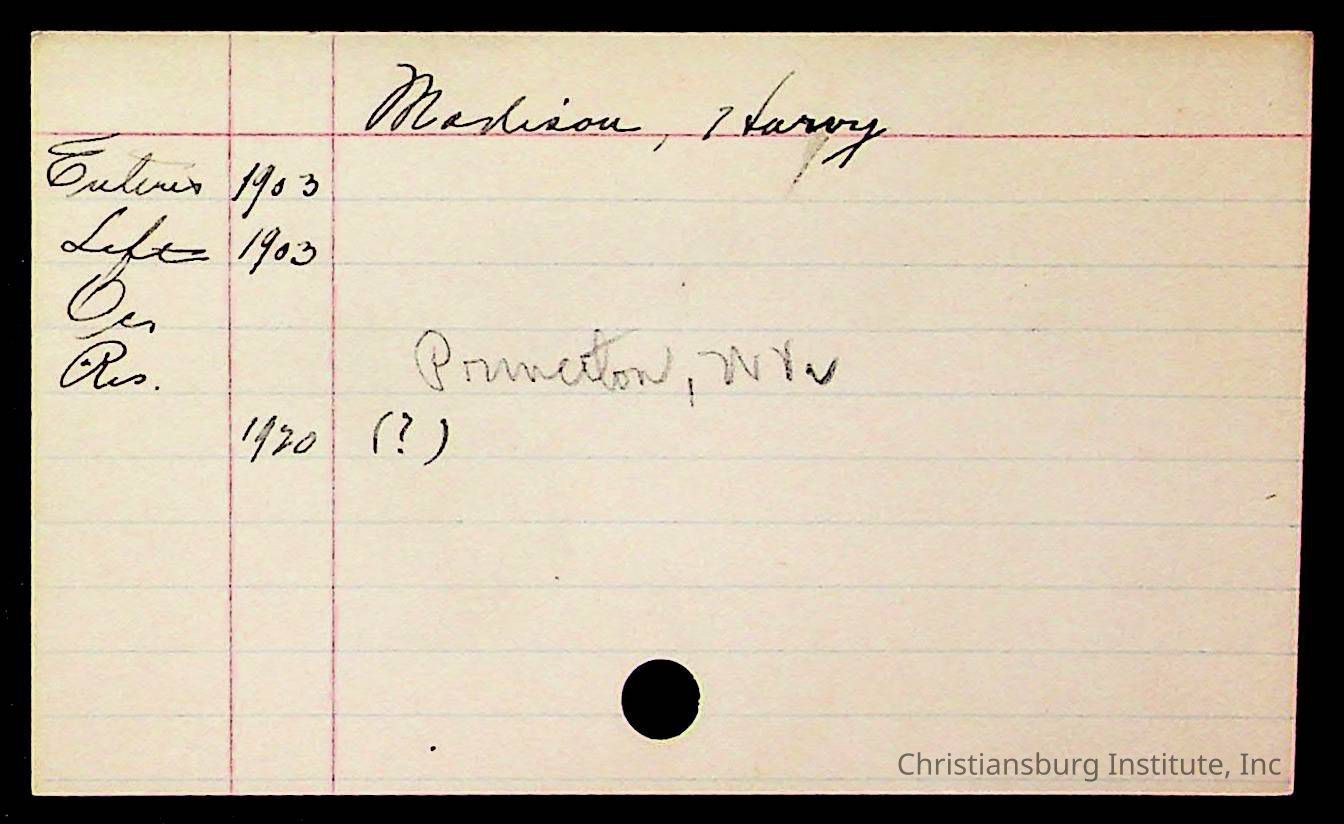 Madison, Harvy
Enters 1903
Left 1903
Occ
Res. Princeton, W Va
1920 (?)
Christiansburg Institute, Inc